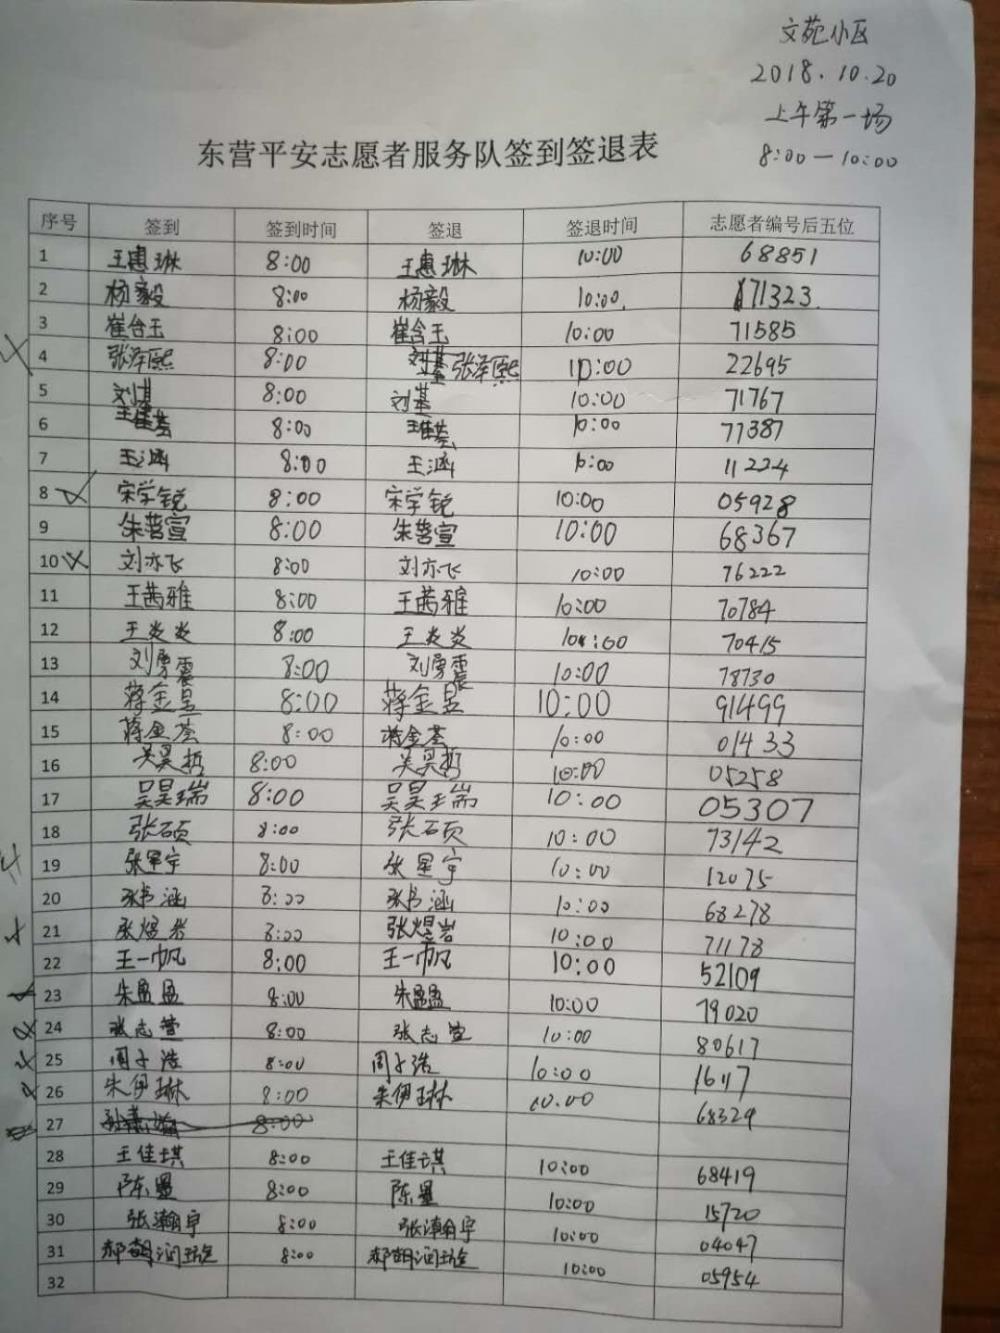 文苑小区
2018.10.20
上午第一场
8:00—10:00
东营平安志愿者服务队签到签退表
序号 签到 签到时间 签退 签退时间 志愿者编号后五位
1 王惠琳 8:00 王惠琳 10:00 68851
2 杨毅 8:00 杨毅 10:00. 71323.
3 崔含玉 8:00 崔含玉 10:00 71585
4 张泽熙 8:00 张泽熙 10:00 22695
5 刘基 8:00 刘基 10:00 71767
6 8:00 10:00 77387
7 王涵 8:00 王涵 10:00 11224
8 宋学锐 8:00 宋学锐 10:00 05928
9 朱哲宣 8:00 朱哲宣 10:00 68367
10 刘亦飞 8:00 刘亦飞 10:00 76222
11 王茜雅 8:00 王茜雅 10:00 70784
12 王炎炎 8:00 王炎炎 10:00 70415
13 刘勇震 8:00 刘勇震 10:00 78730
14 蒋金昱 8:00 蒋金昱 10:00 91499
15 蒋金荟 8:00 蒋金荟 10:00 01433
16 吴昊哲 8:00 吴昊哲 10:00 05258
17 吴昊瑞 8:00 吴昊瑞 10:00 05307
18 张硕 8:00 张硕 10:00 73142
19 张星宇 8:00 张星宇 10:00 12075
20 张书涵 8:00 张书涵 10:00 68278
21 张煜岩 8:00 张煜岩 10:00 71178
22 王一帆 8:00 王一帆 10:00 52109
23 朱盈盈 8:00 朱盈盈 10:00 79020
24 张志萱 8:00 张志萱 10:00 80617
25 周子浩 8:00 周子浩 10:00 16117
26 朱伊琳 8:00 朱伊琳 10:00 68329
27 8:00
28 王佳琪 8:00 王佳琪 10:00 68419
29 陈墨 8:00 陈墨 10:00 15720
30 张瀚宇 8:00 张瀚宇 10:00 04047
31 8:00 10:00 05954
32